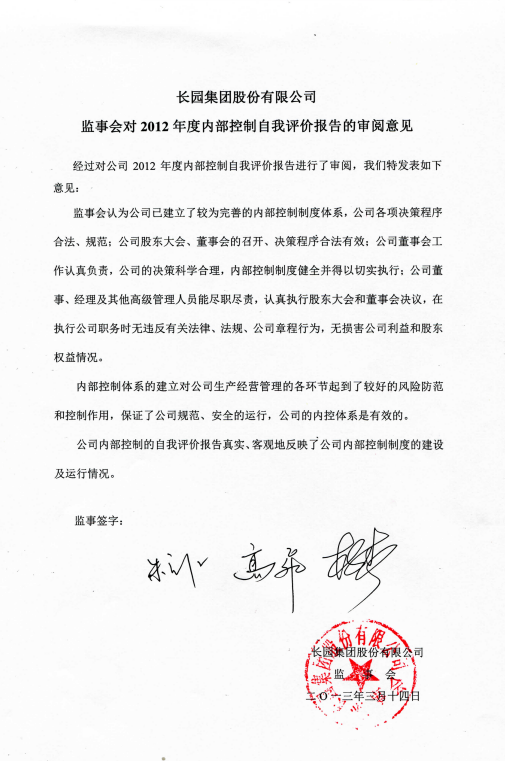 长园集团股份有限公司
监事会对 2012 年度内部控制自我评价报告的审阅意见
经过对公司 2012 年度内部控制自我评价报告进行了审阅，我们特发表如下
意见：
监事会认为公司已建立了较为完善的内部控制制度体系，公司各项决策程序
合法、规范；公司股东大会、董事会的召开、决策程序合法有效；公司董事会工
作认真负责，公司的决策科学合理，内部控制制度健全并得以切实执行；公司董
事、经理及其他高级管理人员能尽职尽责，认真执行股东大会和董事会决议，在
执行公司职务时无违反有关法律、法规、公司章程行为，无损害公司利益和股东
权益情况。
内部控制体系的建立对公司生产经营管理的各环节起到了较好的风险防范
和控制作用，保证了公司规范、安全的运行，公司的内控体系是有效的。
公司内部控制的自我评价报告真实、客观地反映了公司内部控制制度的建设
及运行情况。
监事签字：
长园集团股份有限公司
监 事 会
二〇一三年三月十四日